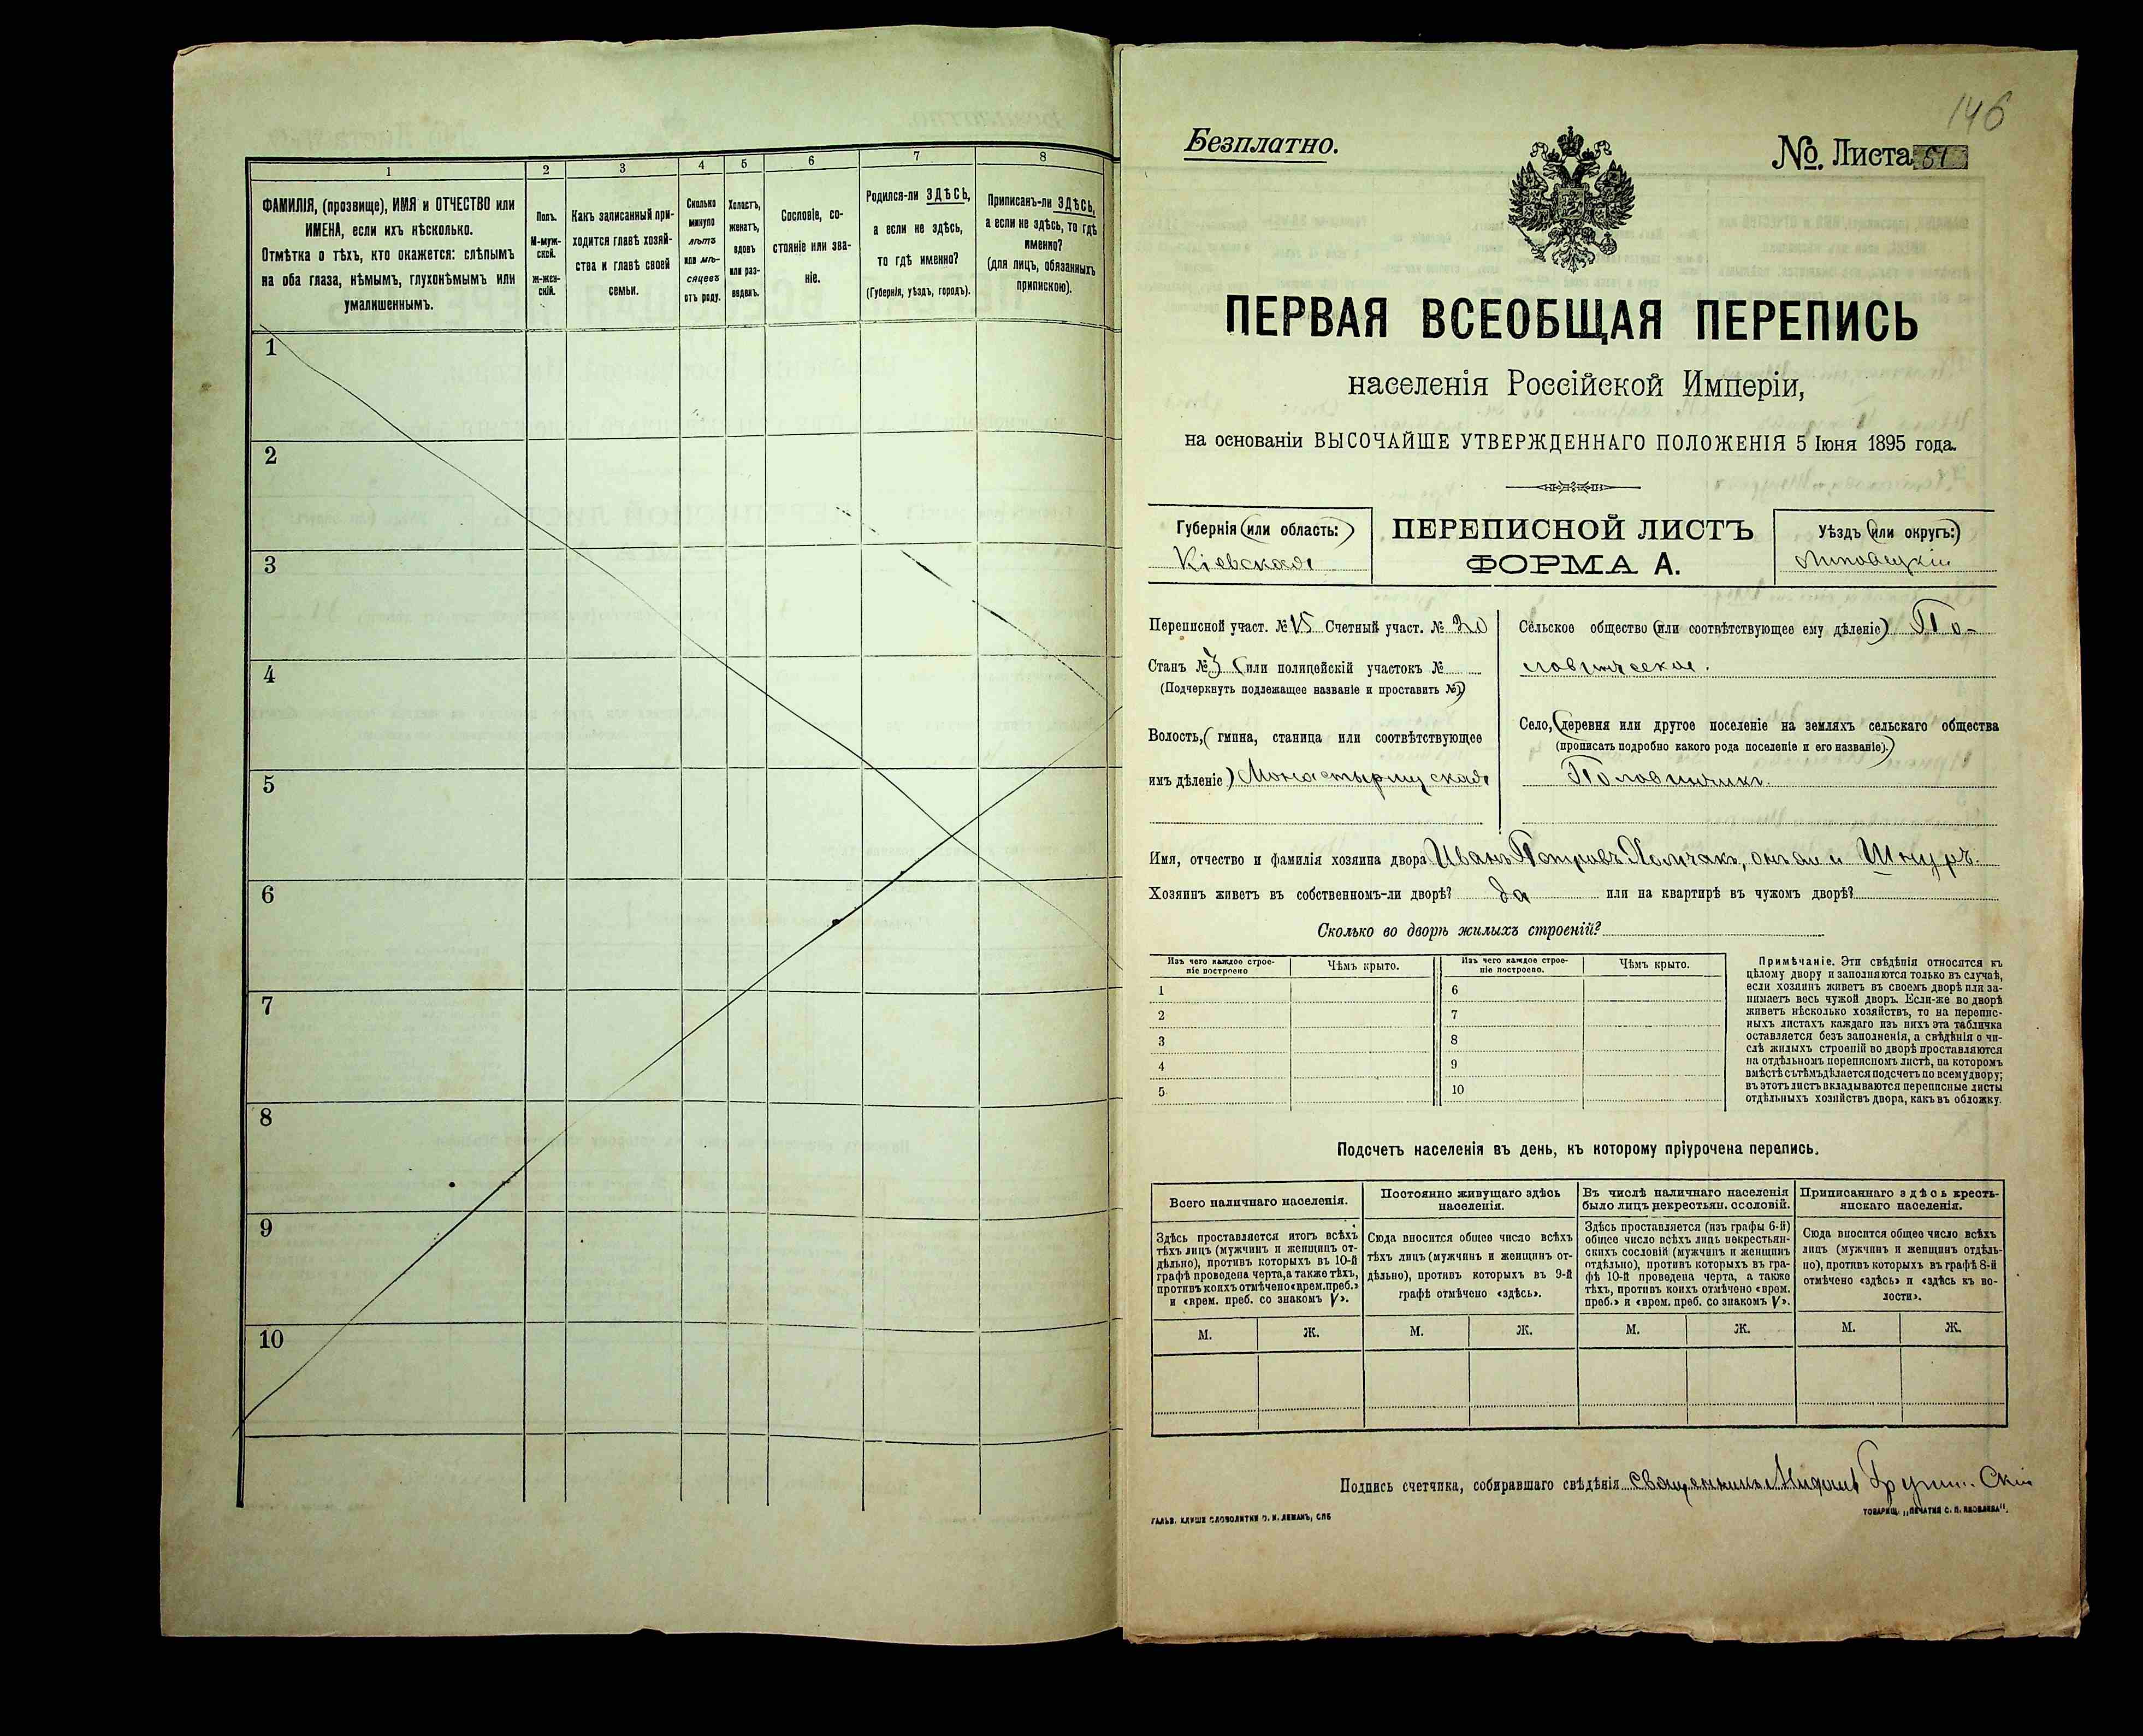 1
2
3
4
5
6
7
8
ФАМИЛІЯ, (прозвище), ИМЯ и ОТЧЕСТВО или
ИМЕНА, если ихъ нѣсколько.
Отмѣтка о тѣхъ, кто окажется: слѣпымъ
на оба глаза, нѣмымъ, глухонѣмымъ или
умалишеннымъ.
Полъ.
М-муж-
ской.
Ж-жен-
скій.
Какъ записанный при-
ходится главѣ хозяй-
ства и главѣ своей
семьи.
Сколько
минуло
лѣтъ
или мѣ-
сяцевъ
отъ роду.
Холостъ,
женатъ,
вдовъ
или раз-
веденъ.
Сословіе, со-
стояніе или зва-
ніе.
Родился-ли ЗДѢСЬ,
а если не здѣсь,
то гдѣ именно?
(Губернія, уѣздъ, городъ).
Приписанъ-ли ЗДѢСЬ,
а если не здѣсь, то гдѣ
именно?
(для лицъ, обязанныхъ
припискою).
1
2
3
4
5
6
7
8
9
10
146
Безплатно.
№. Листа 51
ПЕРВАЯ ВСЕОБЩАЯ ПЕРЕПИСЬ
населенія Россійской Имперіи,
на основаніи ВЫСОЧАЙШЕ УТВЕРЖДЕННАГО ПОЛОЖЕНІЯ 5 Іюня 1895 года.
Губернія (или область:)
Кіевская
ПЕРЕПИСНОЙ ЛИСТЪ
ФОРМА А.
Уѣздъ (или округъ:)
Липовецкій
Переписной участ. № 15 Счетный участ. № 20
Станъ № 3 (или полицейскій участокъ №
(Подчеркнуть подлежащее названіе и проставить №)
Волость, (гмина, станица или соотвѣтствующее
имъ дѣленіе) Монастырищская
Сельское общество (или соотвѣтствующее ему дѣленіе) По-
ловинчское.
Село, (деревня или другое поселеніе на земляхъ сельскаго общества
(прописать подробно какого рода поселеніе и его названіе).)
Половинчикъ.
Имя, отчество и фамилія хозяина двора Иванъ Петровъ онъ же и Шнуръ.
Хозяинъ живетъ въ собственномъ-ли дворѣ? да или на квартирѣ въ чужомъ дворѣ?
Сколько во дворѣ жилыхъ строеній?
Изъ чего каждое строе-
ніе построено
Чѣмъ крыто.
Изъ чего каждое строе-
ніе построено.
Чѣмъ крыто.
1
2
3
4
5
6
7
8
9
10
Примѣчаніе. Эти свѣдѣнія относятся къ
цѣлому двору и заполняются только въ случаѣ,
если хозяинъ живетъ въ своемъ дворѣ или за-
нимаетъ весь чужой дворъ. Если-же во дворѣ
живетъ нѣсколько хозяйствъ, то на перепис-
ныхъ листахъ каждаго изъ нихъ эта табличка
оставляется безъ заполненія, а свѣдѣнія о чи-
слѣ жилыхъ строеній во дворѣ проставляются
на отдѣльномъ переписномъ листѣ, на которомъ
вмѣстѣ съ тѣмъ дѣлается подсчетъ по всему двору;
въ этотъ листъ вкладываются переписные листы
отдѣльныхъ хозяйствъ двора, какъ въ обложку.
Подсчетъ населенія въ день, къ которому пріурочена перепись.
Всего наличнаго населенія.
Постоянно живущаго здѣсь
населенія.
Въ числѣ наличнаго населенія
было лицъ некрестьян. сословій.
Приписаннаго здѣсь кресть-
янскаго населенія.
Здѣсь проставляется итогъ всѣхъ
тѣхъ лицъ (мужчинъ и женщинъ от-
дѣльно), противъ которыхъ въ 10-й
графѣ проведена черта, а также тѣхъ,
противъ коихъ отмѣчено «врем. преб.»
и «врем. преб. со знакомъ V».
Сюда вносится общее число всѣхъ
тѣхъ лицъ (мужчинъ и женщинъ от-
дѣльно), противъ которыхъ въ 9-й
графѣ отмѣчено «здѣсь».
Здѣсь проставляется (изъ графы 6-й)
общее число всѣхъ лицъ некрестьян-
скихъ сословій (мужчинъ и женщинъ
отдѣльно), противъ которыхъ въ гра-
фѣ 10-й проведена черта, а также
тѣхъ, противъ коихъ отмѣчено «врем.
преб.» и «врем. преб. со знакомъ V».
Сюда вносится общее число всѣхъ
лицъ (мужчинъ и женщинъ отдѣль-
но), противъ которыхъ въ графѣ 8-й
отмѣчено «здѣсь» и «здѣсь къ во-
лости».
М.
Ж.
М.
Ж.
М.
Ж.
М.
Ж.
Подпись счетчика, собиравшаго свѣдѣнія священникъ
ГАЛЬВ. КЛИШЕ СЛОВОЛИТНИ О. И. ЛЕМАНЪ, СПБ
ТОВАРИЩ. „ПЕЧАТНЯ С. П. ЯКОВЛЕВА".